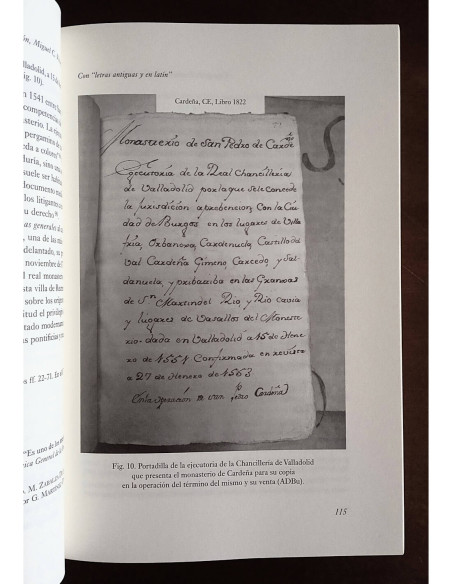 Con "letras antiguas y en latín"
Cardeña, CE, Libro 1822
Monasterio de San Pedro de Carde
Egecutoria de la Real Chancilleria
de Valladolid por la que se le concede
la Jurisdicion aprebencion, con la Ciu
dad de Burgos en los lugares de Villa
fria, Orbanexa, Cardenuela, Castillo del
Val Cardeña Gimeno, Carcedo, y Sal
danuela, y pribatiba en las Granxas
de Sn. Martin del Rio, y Rio cavia
y lugares de Vasallos del Monaste
rio. dada en Valladolid a 15 de Hene
ro de 1551 Confirmada en revista
a 27 de Henero de 1563
Fig. 10. Portadilla de la ejecutoria de la Chancillería de Valladolid
que presenta el monasterio de Cardeña para su copia
en la operación del término del mismo y su venta (ADBu).
115
ín, Miguel C.
lladolid, a
g. 10).
n 1541 entre
competencias
sterio. La
pergamino
eda a colores
duría, sino
suele ser
documento
los litigantes
su derecho
as generales
, una de las
delantado, su
noviembre de
l real monaste
sta villa de
sobre los
titud el privileg
tado modernam
as pontificias y
os ff. 22-71. En
"Es uno de los
nica General de
. M. ZABALZA
or G. MARTÍNEZ